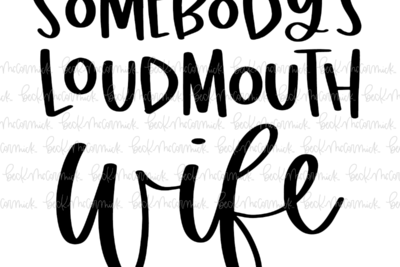 SOMEBODY'S
LOUDMOUTH
Wife